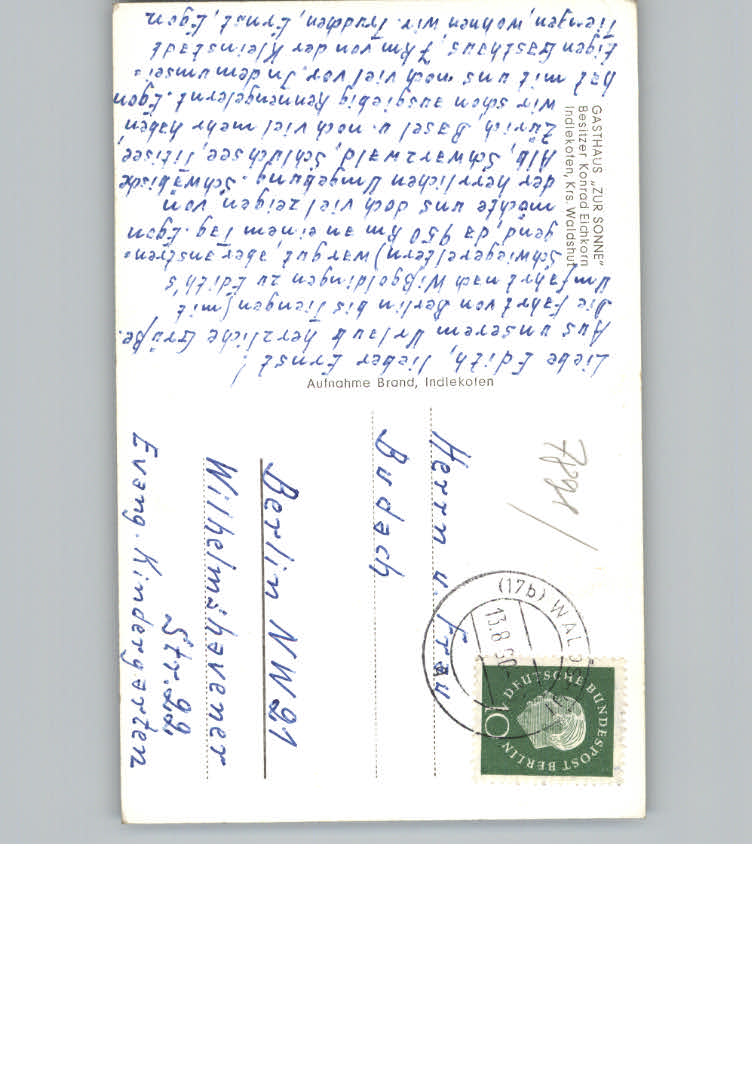 GASTHAUS „ZUR SONNE"
Besitzer Konrad Eichkorn
Indlekofen, Krs. Waldshut
Aufnahme Brand, Indlekofen
Liebe Edith, lieber Ernst!
Aus unserem Urlaub herzliche Grüße.
Die Fahrt von Berlin bis Tiengen (mit
Umfahrt nach Wißgoldingen zu Edith's
Schwiegereltern) war gut, aber anstren-
gend, da 950 km an einem Tag. Egon
möchte uns doch viel zeigen von
der herrlichen Umgebung. Schwäbische
Alb, Schwarzwald, Schluchsee, Titisee,
Zürich, Basel u. noch viel mehr haben
wir schon ausgiebig kennengelernt. Egon
hat mit uns noch viel vor. In dem umsei-
tigen Gasthaus, 7 km von der Kleinstadt
Tiengen, wohnen wir. Trudchen, Ernst, Egon
Herrn u. Frau
Budach
Berlin NW 21
Wilhelmshavener
Str. 99
Evang. Kindergarten
7891
(17b) WALDS
13.8.60
DEUTSCHE BUNDESPOST BERLIN
10